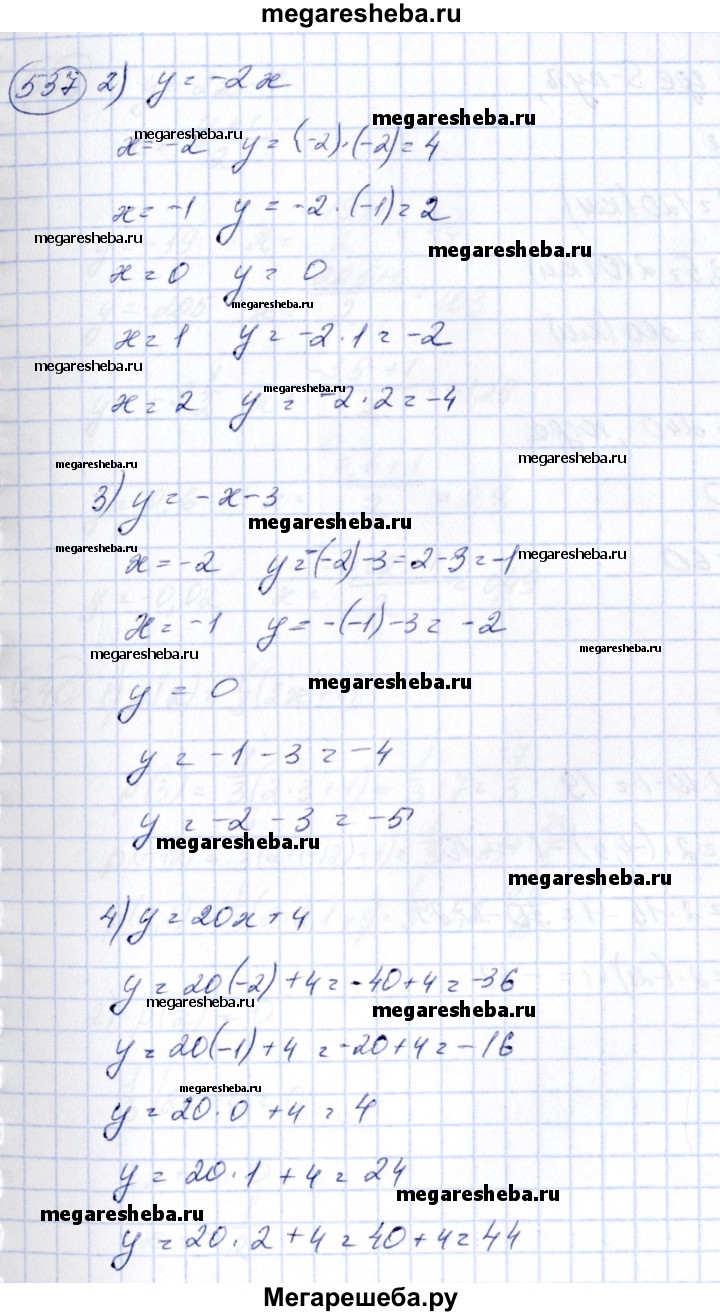 megaresheba.ru
537 2) y = -2x
megaresheba.ru
megaresheba.ru
x = -2 y = (-2)·(-2) = 4
x = -1 y = -2·(-1) = 2
megaresheba.ru
megaresheba.ru
x = 0 y = 0
megaresheba.ru
x = 1 y = -2·1 = -2
megaresheba.ru
megaresheba.ru
x = 2 y = -2·2 = -4
megaresheba.ru
megaresheba.ru
3) y = -x-3
megaresheba.ru
megaresheba.ru
megaresheba.ru
x = -2 y = -(-2)-3 = 2-3 = -1
x = -1 y = -(-1)-3 = -2
megaresheba.ru
megaresheba.ru
megaresheba.ru
y = 0
y = -1-3 = -4
y = -2-3 = -5
megaresheba.ru
megaresheba.ru
4) y = 20x+4
y = 20(-2)+4 = -40+4 = -36
megaresheba.ru
megaresheba.ru
y = 20(-1)+4 = -20+4 = -16
megaresheba.ru
y = 20·0+4 = 4
y = 20·1+4 = 24
megaresheba.ru
megaresheba.ru
y = 20·2+4 = 40+4 = 44
Мегарешеба.ру